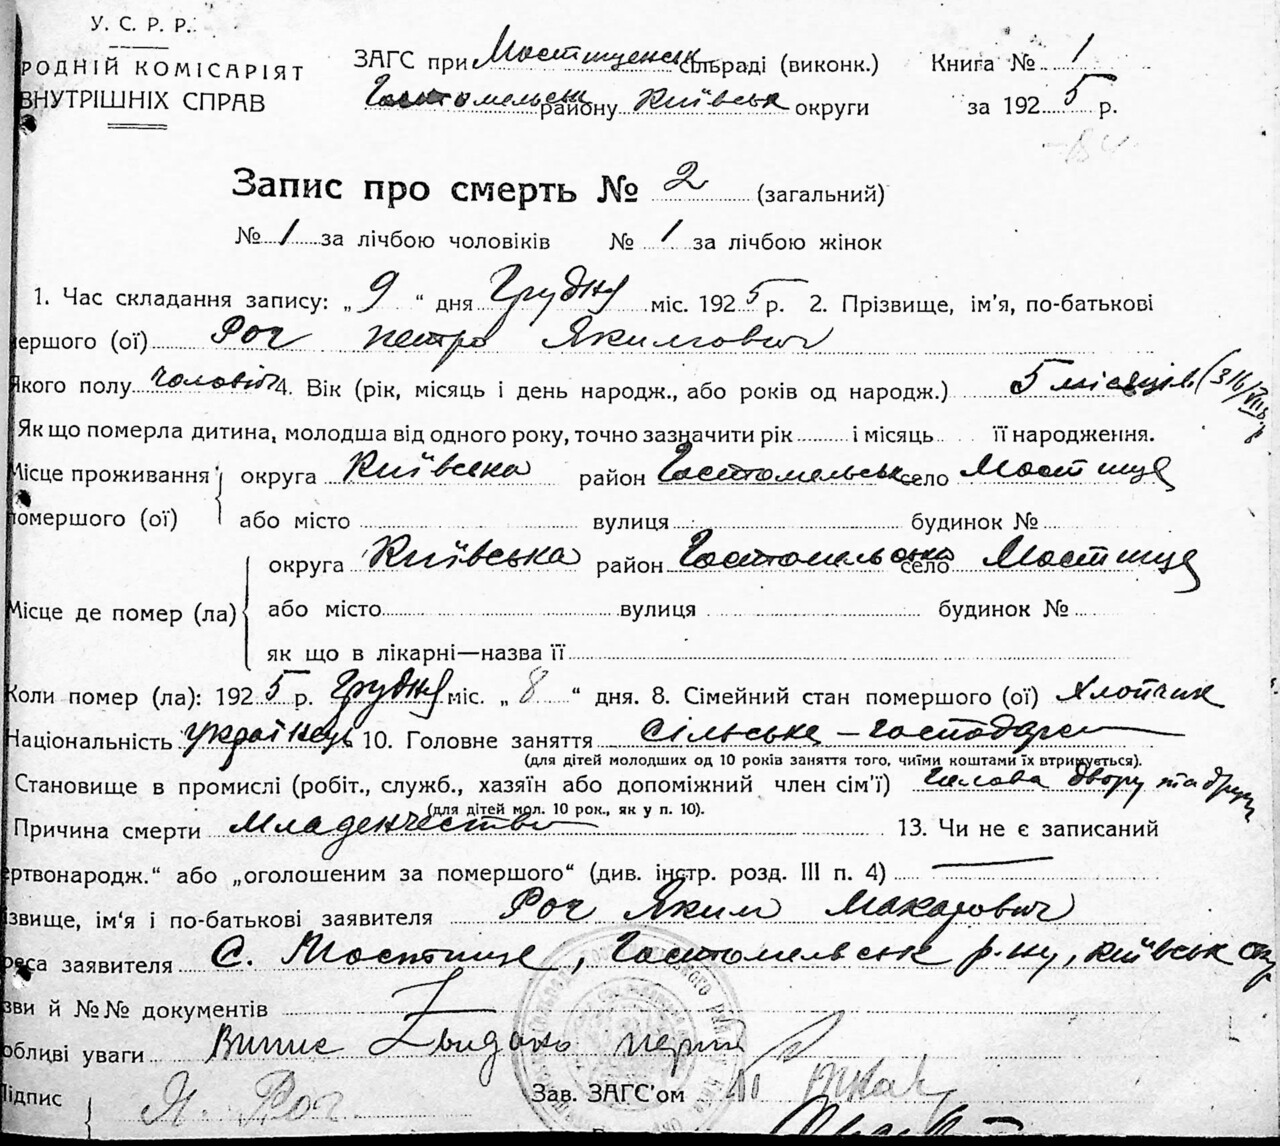 У. С. Р. Р.
РОДНІЙ КОМІСАРІЯТ
ВНУТРІШНІХ СПРАВ
ЗАГС при Мостищенськ сільраді (виконк.)
Гостомельськ району Київськ округи
Книга № 1
за 1925 р.
Запис про смерть № 2 (загальний)
№ 1 за лічбою чоловіків № 1 за лічбою жінок
1. Час складання запису: „ 9 “ дня Грудня міс. 1925 р. 2. Прізвище, ім'я, по-батькові
мершого (ої) Роч Петро Якимович
Якого полу чоловіч 4. Вік (рік, місяць і день народж., або років од народж.) 5 місяців (
Як що померла дитина, молодша від одного року, точно зазначити рік і місяць її народження.
Місце проживання округа Київська район Гостомельськ село Мостище
помершого (ої) або місто вулиця будинок №
округа Київська район Гостомельська село Мостище
Місце де помер (ла) або місто вулиця будинок №
як що в лікарні—назва її
Коли помер (ла): 1925 р. Грудня міс. „ 8 “ дня. 8. Сімейний стан помершого (ої) хлопчик
Національність українець 10. Головне заняття сільське – господарст
(для дітей молодших од 10 років заняття того, чиїми коштами їх втримується).
Становище в промислі (робіт., служб., хазяїн або допоміжний член сім'ї) голова двору та
(для дітей мол. 10 рок., як у п. 10).
Причина смерти Младенчество 13. Чи не є записаний
ертвонародж.“ або „оголошеним за помершого“ (див. інстр. розд. III п. 4)
ізвище, ім'я і по-батькові заявителя Роч Яким Макарович
реса заявителя с. Мостище, Гостомельськ р-ну, Київськ окр
зви й №№ документів
обливі уваги Випис видано
Підпис Я. Роч Зав. ЗАГС'ом